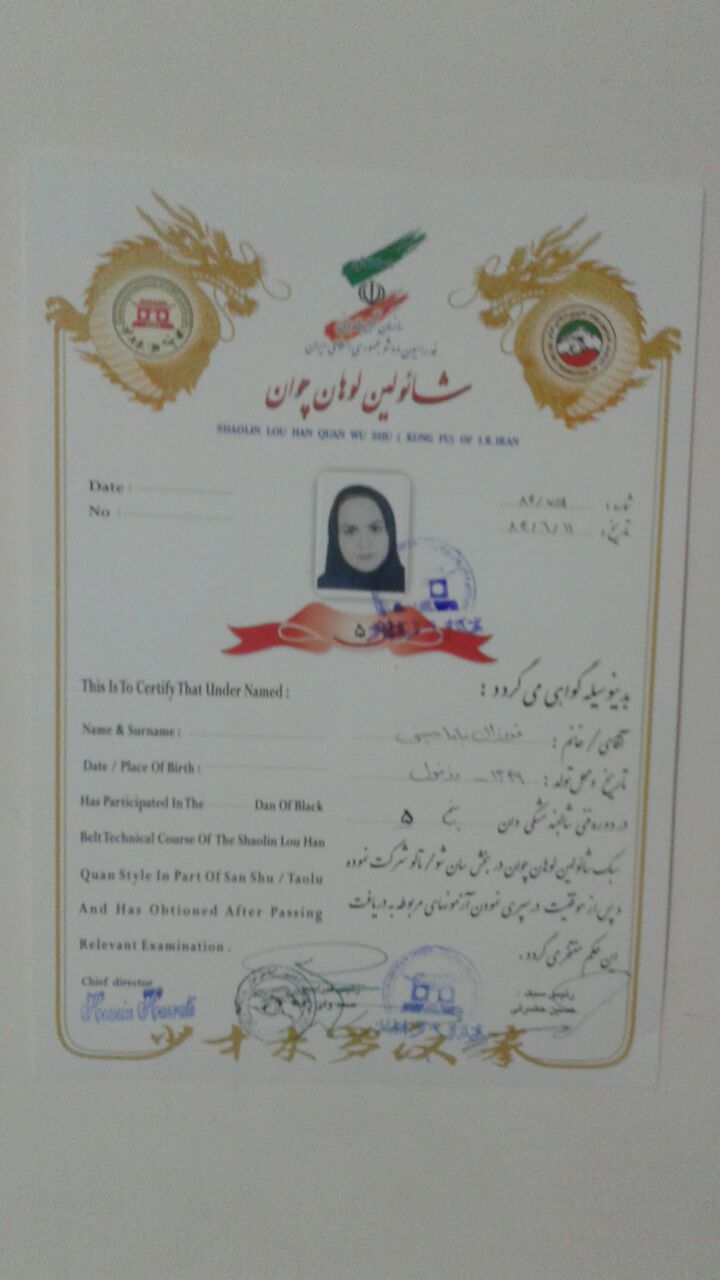 فدراسیون ووشو جمهوری اسلامی ایران
شائولین لوهان چوان
SHAOLIN LOU HAN QUAN WU SHU ( KUNG FU) OF I.R.IRAN
Date :
No :
شماره :
تاریخ : ۸۹/۶/۱۱
۵
This Is To Certify That Under Named :
بدینوسیله گواهی می گردد :
Name & Surname :
آقای / خانم : فروزان باباحسینی
Date / Place Of Birth :
تاریخ و محل تولد : ۱۳۴۹ - دزفول
Has Participated In The Dan Of Black
در دوره فنی شالبند مشکی دان پنج ۵
Belt Technical Course Of The Shaolin Lou Han
سبک شائولین لوهان چوان در بخش سان شو / تالو شرکت نموده
Quan Style In Part Of San Shu / Taolu
و پس از موفقیت در سپری نمودن آزمونهای مربوطه به دریافت
And Has Obtioned After Passing
این حکم مفتخر می گردد .
Relevant Examination .
Chief director
رئیس سبک :
少林罗汉拳